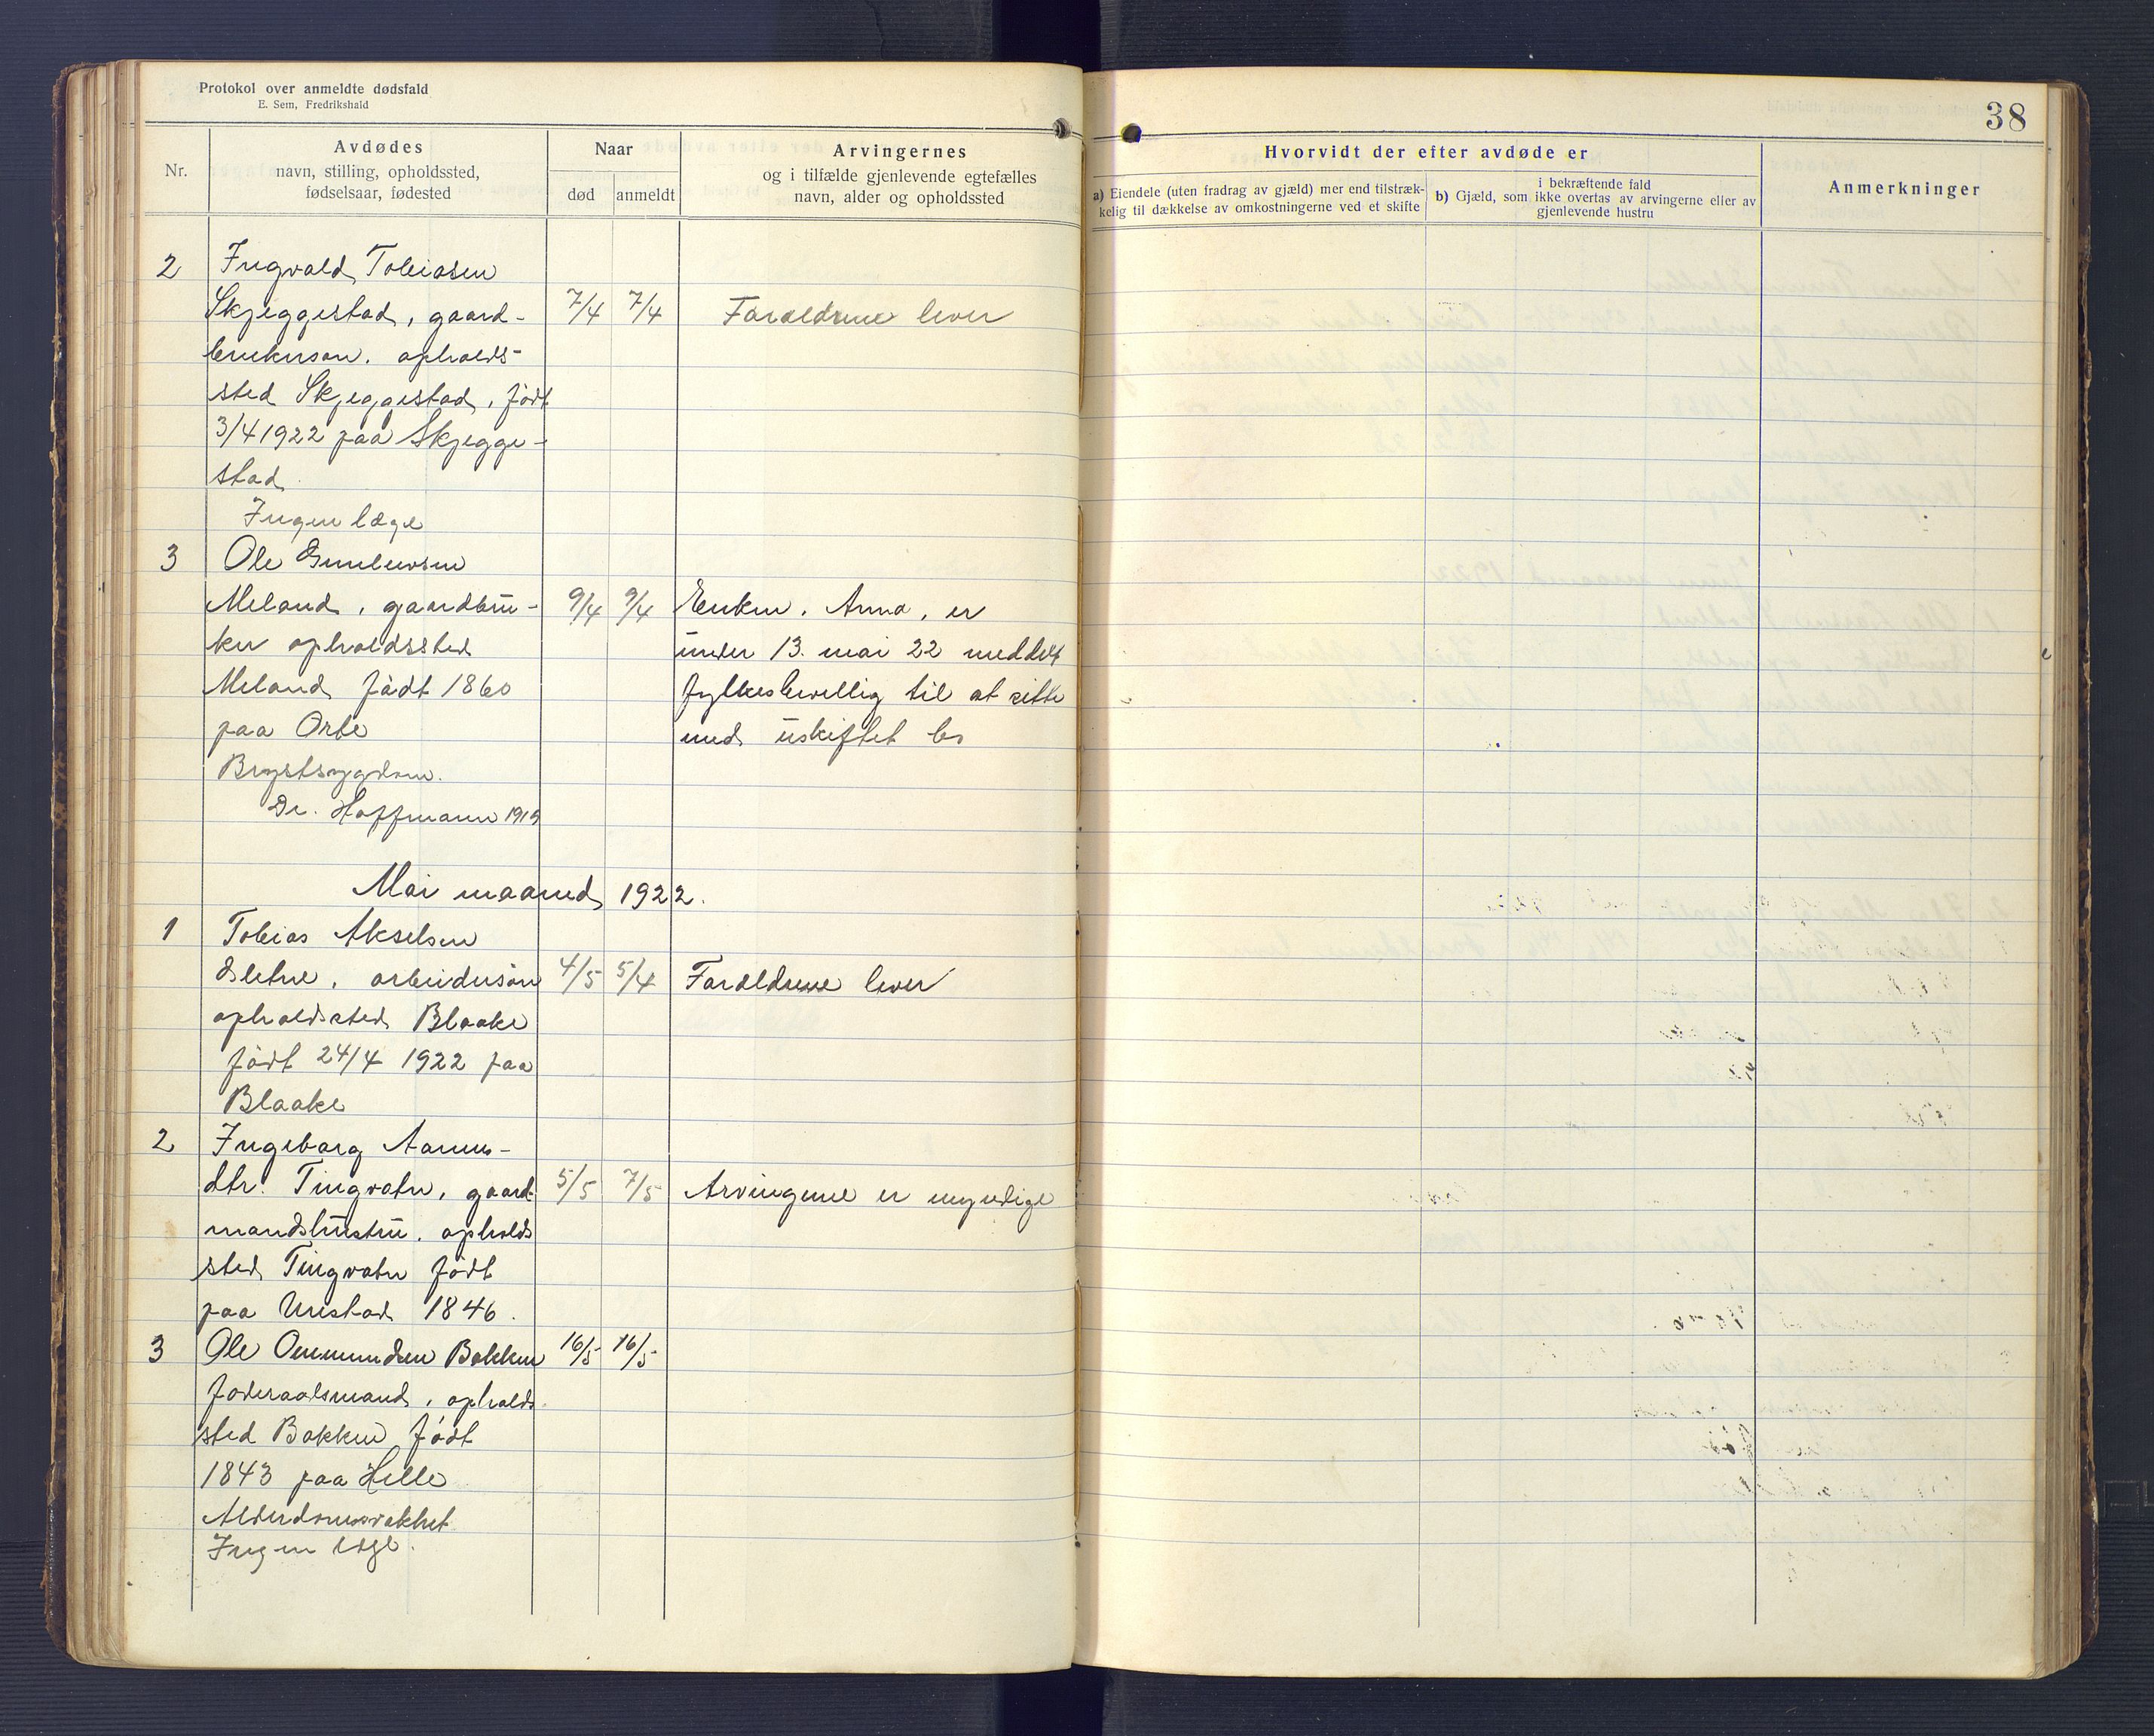 Protokol over anmeldte dødsfald
E. Sem, Fredrikshald
38
Nr.
Avdødes
navn, stilling, opholdssted,
fødselsaar, fødested
Naar
død
anmeldt
Arvingernes
og i tilfælde gjenlevende egtefælles
navn, alder og opholdssted
Hvorvidt der efter avdøde er
a) Eiendele (uten fradrag av gjæld) mer end tilstræk-
kelig til dækkelse av omkostningerne ved et skifte
i bekræftende fald
b) Gjæld, som ikke overtas av arvingerne eller av
gjenlevende hustru
Anmerkninger
2 Ingvald Tobiasen
Skjeggestad, gaard- 7/4 7/4 Foræeldrene lever
brukerson, opholds-
sted Skjeggestad, født
3/4 1922 paa Skjegge-
stad
Ingen læge
3 Ole Gunleivsen
Meland, gaardbru- 9/4 9/4 Enken, Anna, er
ker opholdssted under 13. mai 22 meddelt
Meland født 1860 fylkesbevillig til at sitte
paa Orte med uskiftet bo
Brystsygdom.
Dr. Hoffmann 1919
Mai maaned 1922.
1 Tobias Akselsen
Sletne, arbeidersøn 4/5 5/4 Foræeldrene lever
opholdssted Blaake
født 24/4 1922 paa
Blaake
2 Ingeborg Aanus-
dtr. Tingvatn, gaard- 5/5 7/5 Arvingene er myndige
mandshustru, opholds
sted Tingvatn født
paa Urestad 1846.
3 Ole Ommundsen Bakken 16/5 16/5
føderaadsmand, opholds
sted Bakken født
1843 paa Helle
Alderdomssvakhet
Ingen læge.